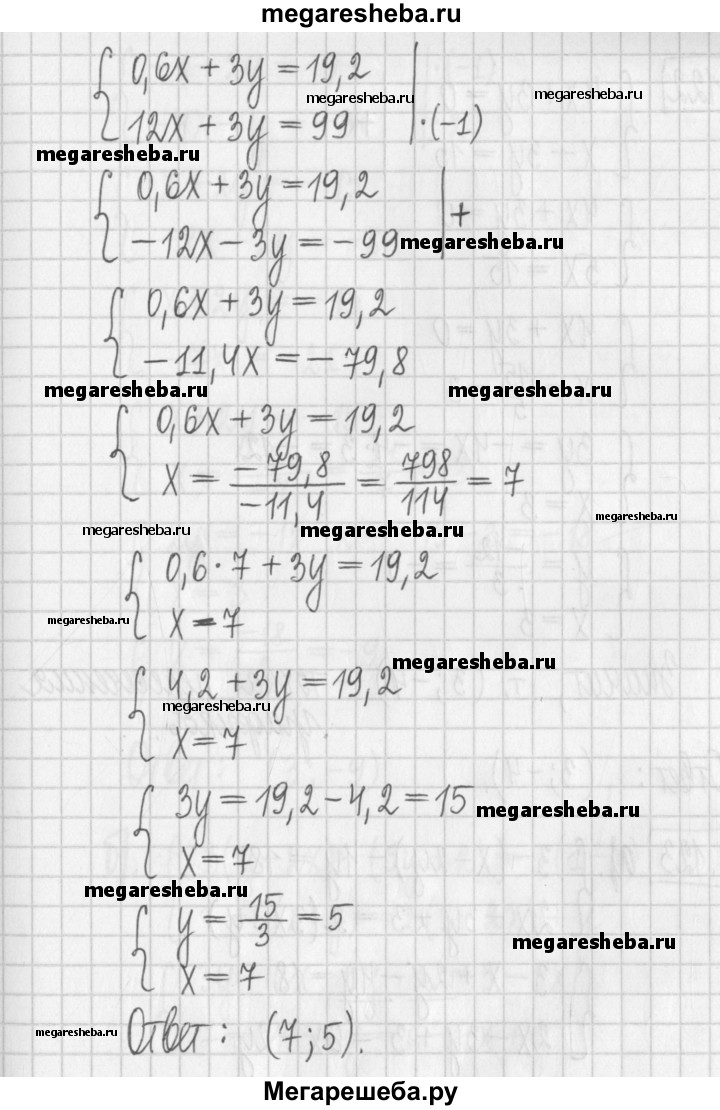 megaresheba.ru
0,6x + 3y = 19,2
megaresheba.ru megaresheba.ru
12x + 3y = 99 | ·(−1)
megaresheba.ru
0,6x + 3y = 19,2 | +
−12x − 3y = −99 megaresheba.ru
0,6x + 3y = 19,2
−11,4x = −79,8
megaresheba.ru megaresheba.ru
0,6x + 3y = 19,2
x = −79,8/−11,4 = 798/114 = 7
megaresheba.ru megaresheba.ru megaresheba.ru
0,6 · 7 + 3y = 19,2
x = 7
megaresheba.ru
megaresheba.ru
4,2 + 3y = 19,2
megaresheba.ru
x = 7
3y = 19,2 − 4,2 = 15 megaresheba.ru
x = 7
megaresheba.ru
y = 15/3 = 5
megaresheba.ru
x = 7
megaresheba.ru Ответ: (7; 5).
Мегарешеба.ру